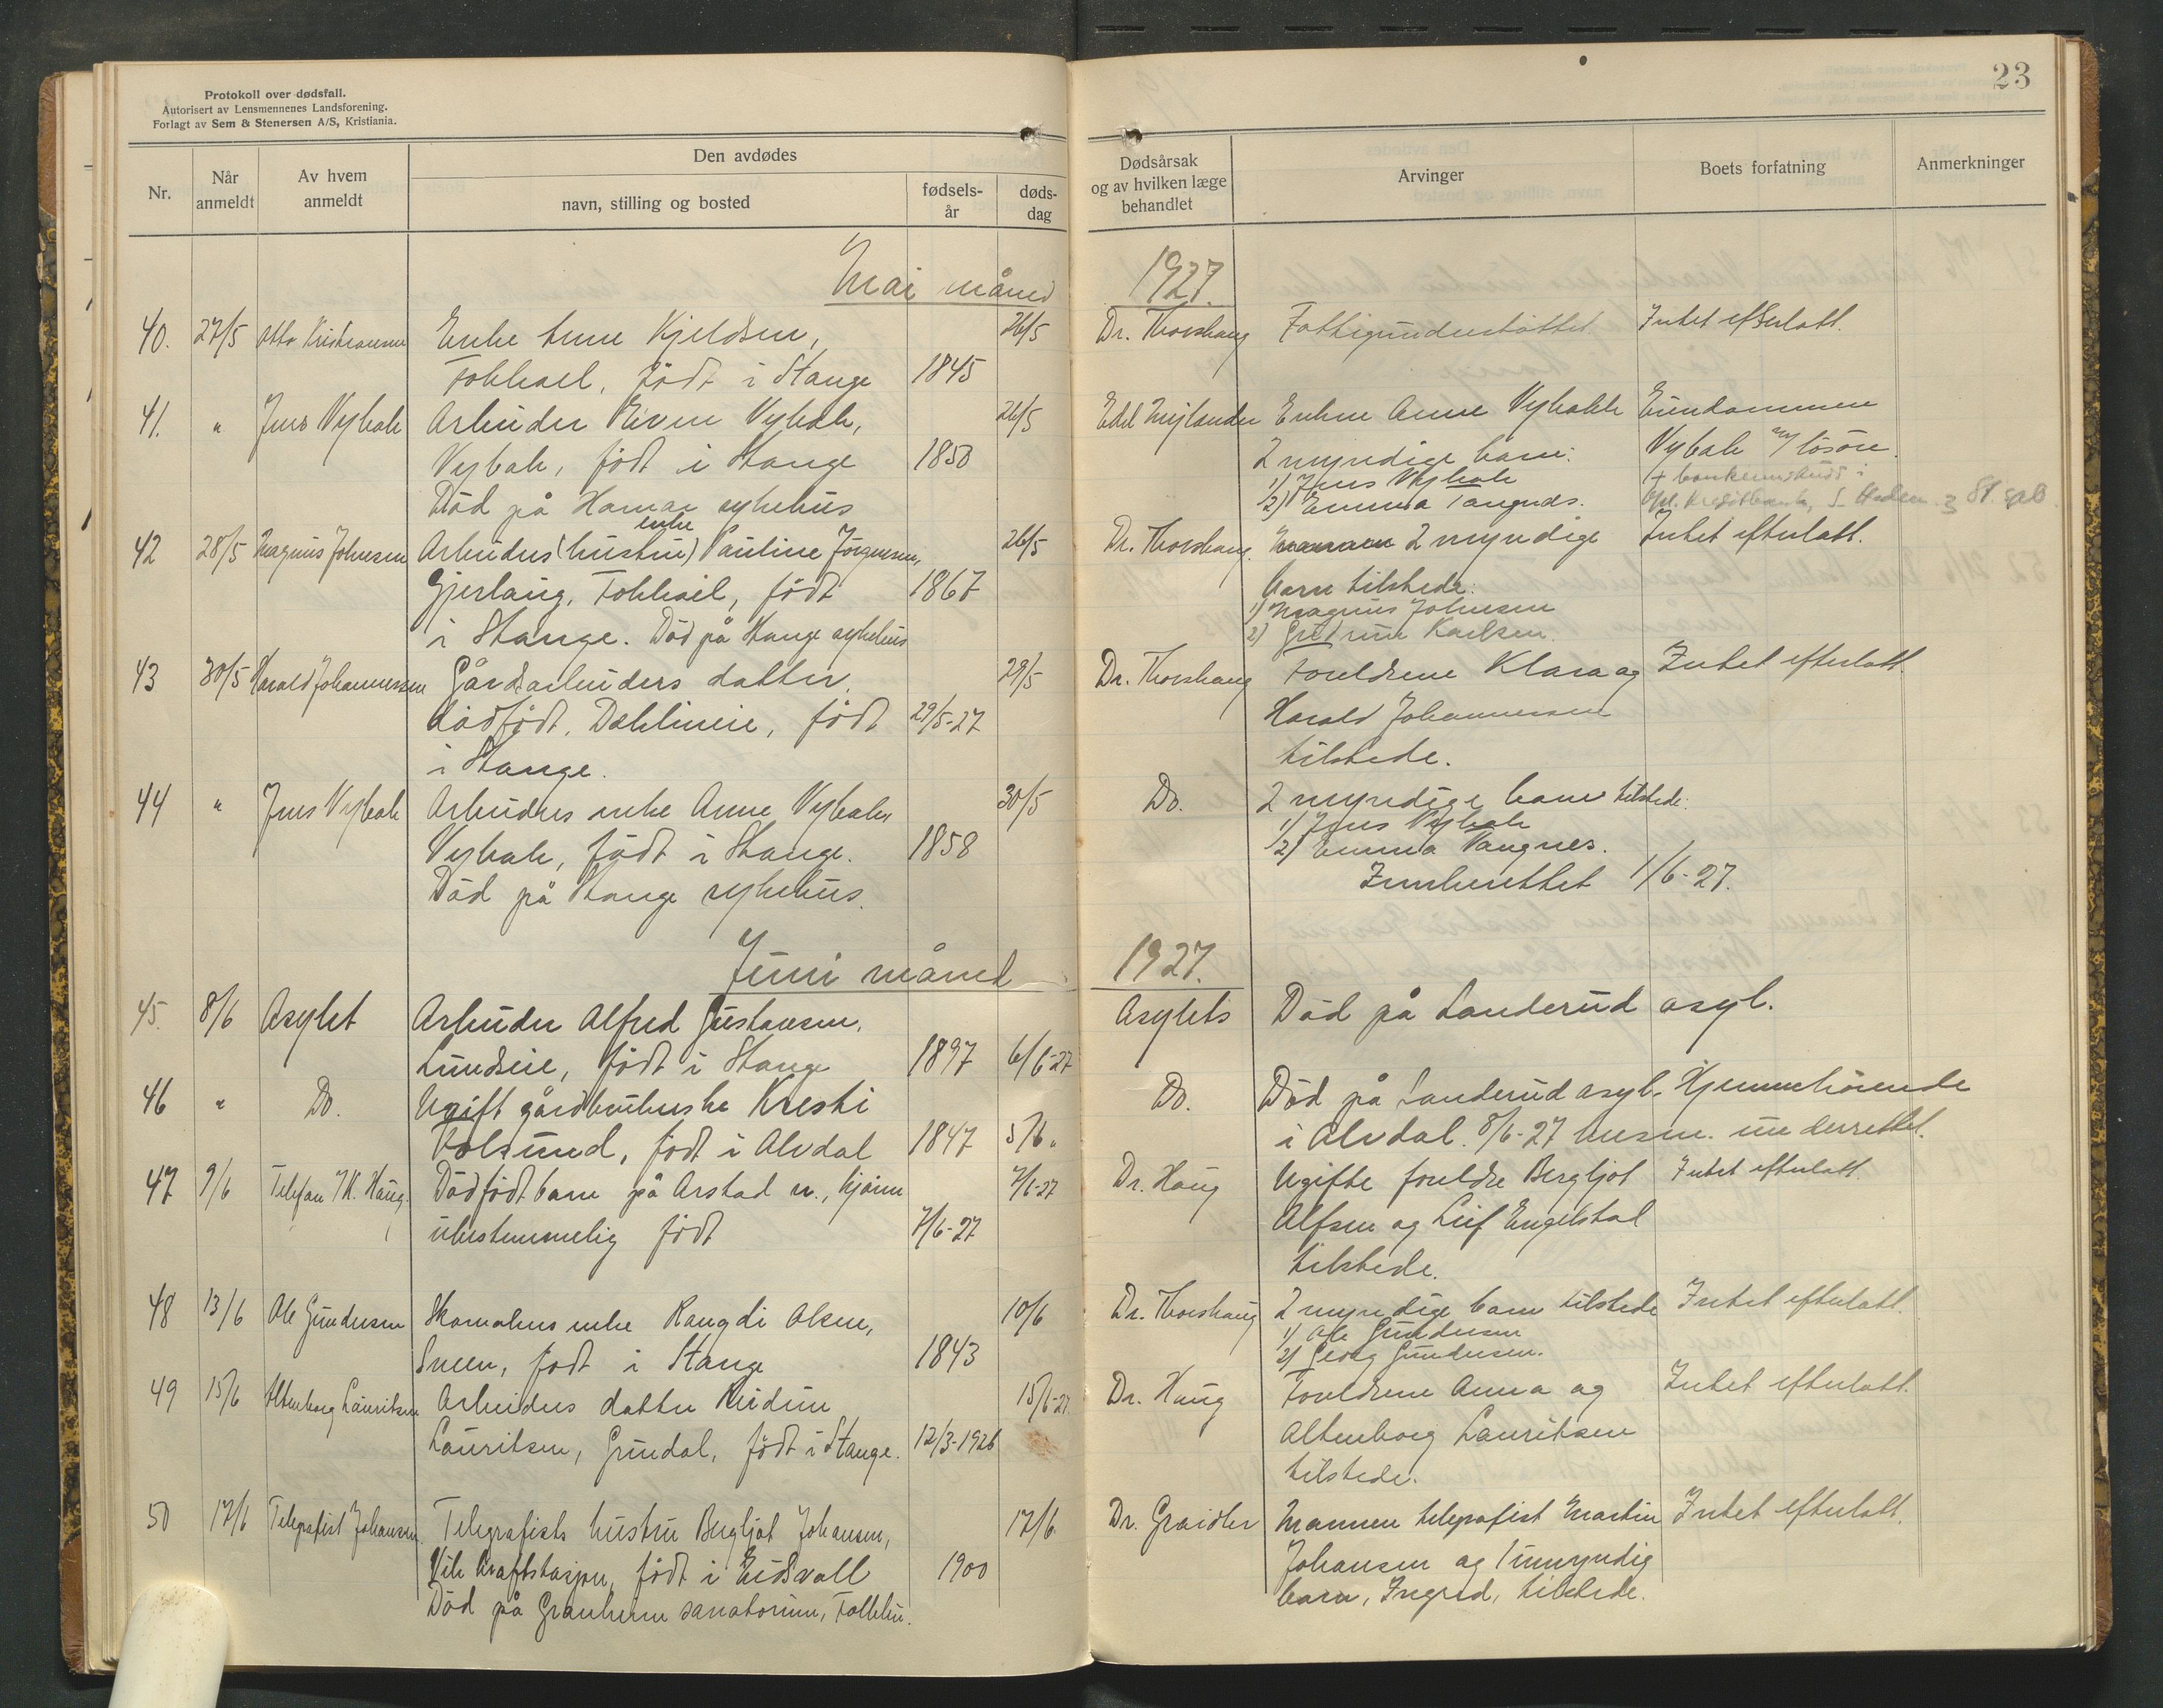 Protokoll over dødsfall.
Autorisert av Lensmennenes Landsforening.
Forlagt av Sem & Stenersen A/S, Kristiania.
23
Nr.
Når anmeldt
Av hvem anmeldt
Den avdødes
navn, stilling og bosted
fødsels-år
døds-dag
Dødsårsak og av hvilken læge behandlet
Arvinger
Boets forfatning
Anmerkninger
Mai måned 1927.
40. 27/5 Otto Kristiansen Enke Anne Kjeldsen, 26/5 Dr. Thorshaug Fattigunderstøttet. Intet efterlatt.
født i Stange 1845
41. " Jens Vybak Arbeider Even Vybak, 26/5 Enken Anne Vybak Eiendommen
Vybak, født i Stange 1850 2 myndige barn: Vybak m/ løsøre.
1) Jens Vybak
Død på Hamar sykehus 2) Emma
enke
42 28/5 Magnus Johnsen Arbeiders (hustru) Pauline Jørgensen, 26/5 Dr. Thorshaug. 2 myndige Intet efterlatt.
Gjerlaug, født 1867 barn tilstede:
1) Magnus Johnsen
i Stange. Død på Stange sykehus 2) Gudrun Karlsen.
43 30/5 Harald Johannessen Gårdsarbeiders datter 29/5 Dr. Thorshaug Foreldrene Klara og Intet efterlatt.
dødfødt, født 29/5-27 Harald Johannessen
i Stange. tilstede.
44 " Jens Vybak Arbeiders enke Anne Vybak, 30/5 Do. 2 myndige barn tilstede:
1) Jens Vybak
Vybak, født i Stange. 1858 2) Emma Tangnes.
Død på Stange sykehus. Innberettet 1/6-27.
Juni måned 1927.
45. 8/6 Asylet Arbeider Alfred Gustavsen, Asylets Død på Sanderud asyl.
Lundseie, født i Stange 1897 6/6-27
46 " Do. Ugift Kresti Do. Død på Sanderud asyl. Hjemmehørende
født i Alvdal 1847 5/6 " i Alvdal. 8/6-27 lensm. underrettet.
47 9/6 Telefon Haug. Dødfødt barn på Arstad n., kjønn 7/6-27 Dr. Haug Ugifte foreldre Bergljot Intet efterlatt.
ubestemmelig født 7/6-27 Alfsen og Leif Engelstad
tilstede.
48 13/6 Ole Gundersen Skomakers enke Rangdi Olsen, 10/6 Dr. Thorshaug 2 myndige barn tilstede Intet efterlatt.
1) Ole Gundersen
Sveen, født i Stange 1843 2) Georg Gundersen.
49 15/6 Altenborg Lauritsen Arbeiders datter Reidun 15/6-27 Dr. Haug Foreldrene Anna og Intet efterlatt.
Lauritsen, Grundal, født i Stange. 12/3-1926 Altenborg Lauritsen
tilstede.
50 17/6 Telegrafist Johansen. Telegrafists hustru Bergljot Johansen, 17/6 Dr. Mannen telegrafist Martin Intet efterlatt.
Vik Kraftstasjon, født i Eidsvoll 1900 Johansen og 1 umyndig
Død på Granheim sanatorium, Follebu. barn, Ingrid, tilstede.